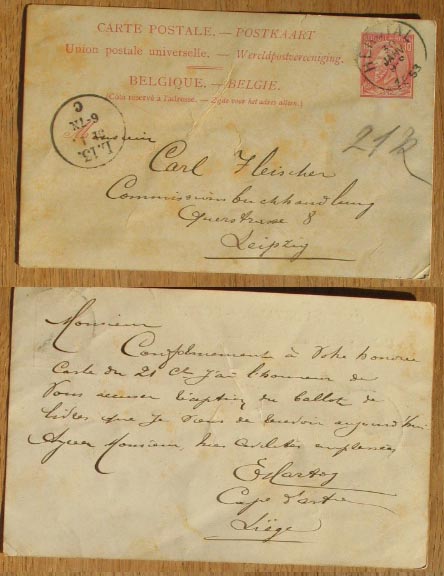 CARTE POSTALE. — POSTKAART
Union postale universelle. — Wereldpostvereeniging.
BELGIQUE. — BELGIE.
(Côté réservé à l'adresse. — Zijde voor het adres alleen.)
L.13.
6-
C
93
Monsieur
Carl Fleischer
Commissionsbuchhandlung
Querstrasse 8
Leipzig
Monsieur
Conformément à Votre honorée
Carte du 21 Ct j'ai l'honneur de
Vous accuser réception du ballot de
livres que je viens de recevoir aujourd'hui
Agréez Monsieur, mes civilités empressées
Liège